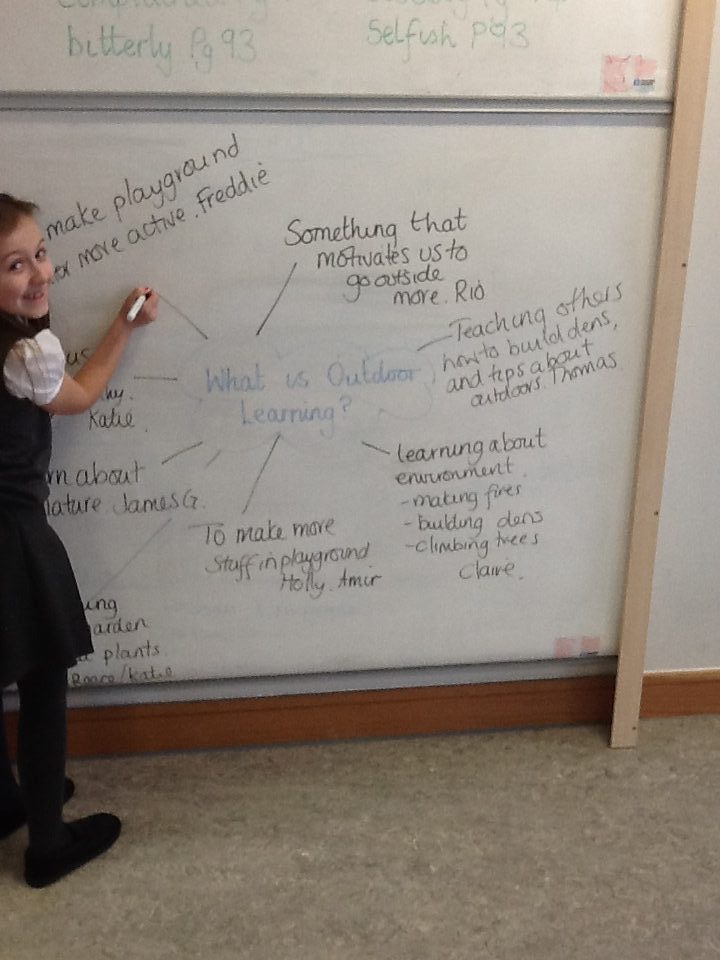 bitterly Pg 93
Selfish P93
make playground
more active. Freddie
Something that
motivates us to
go outside
more. Rio
Teaching others
how to build dens,
and tips about
outdoors. Thomas
What is Outdoor
Learning?
us
Katie
about
James G.
learning about
environment
- making fires
- building dens
- climbing trees
Claire.
To make more
Stuff in playground
Holly. Amir
plants.
/Katie